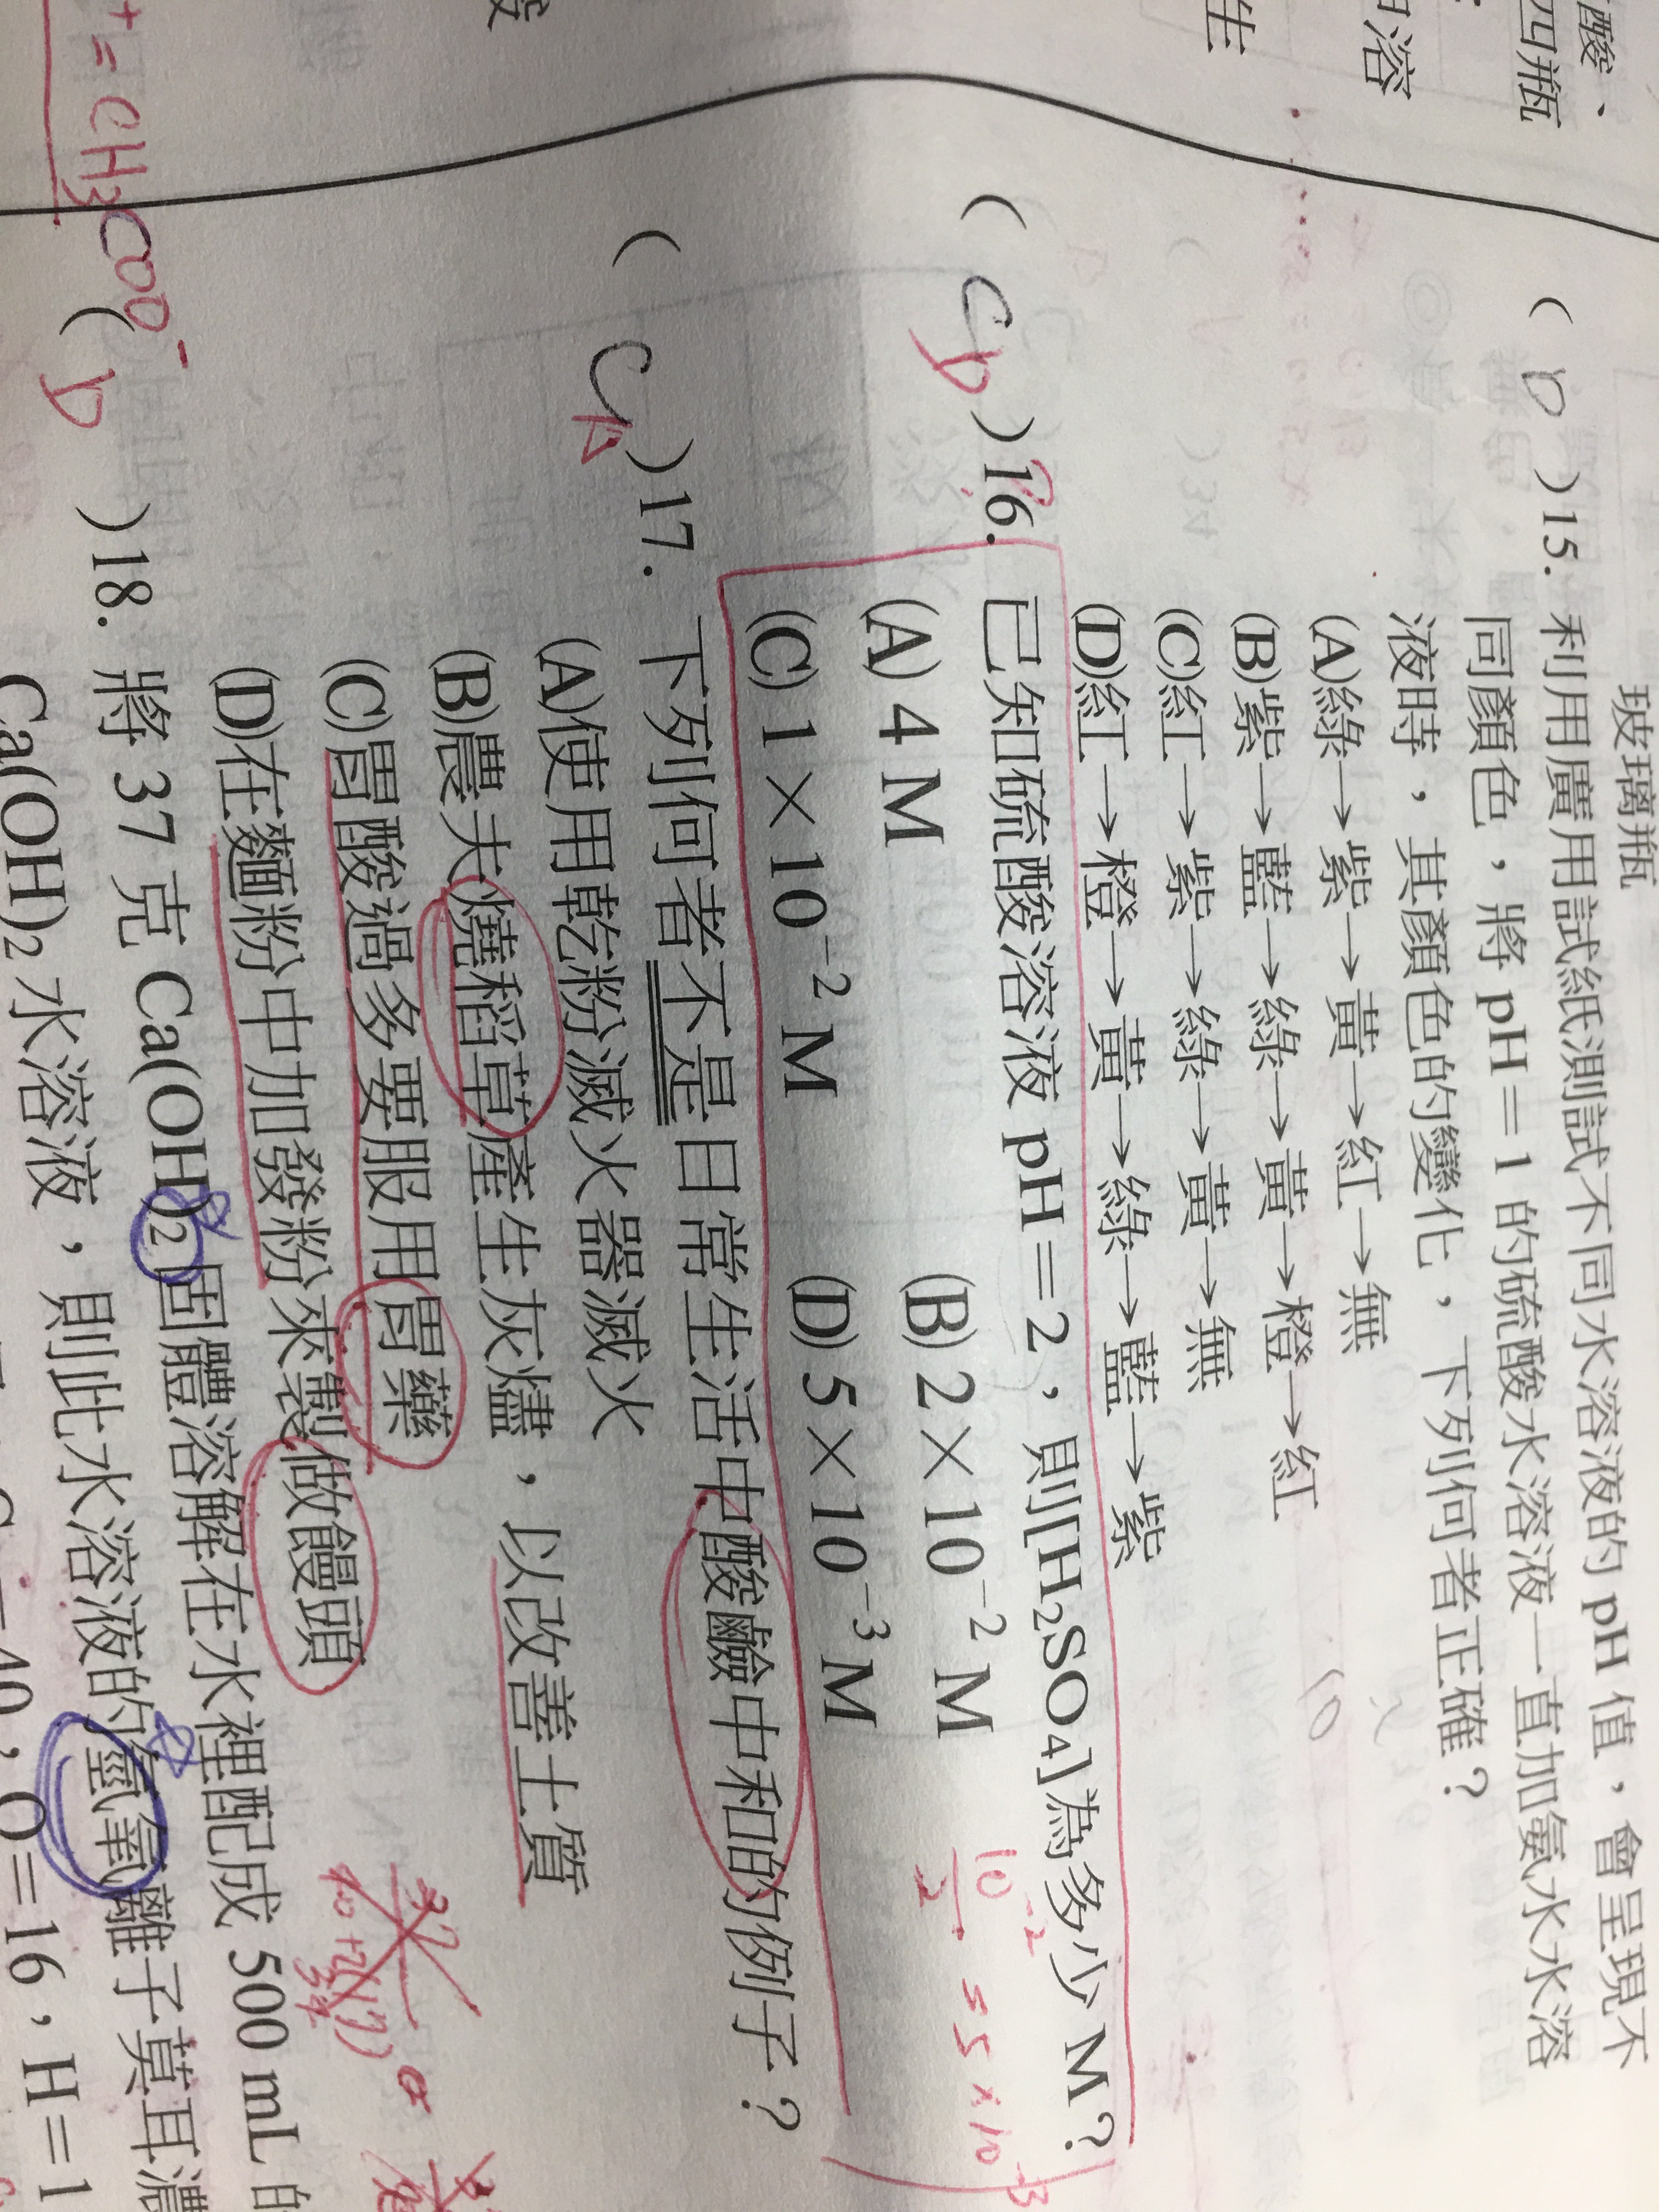 酸、
四瓶
中溶
生
玻璃瓶
( D )15. 利用廣用試紙測試不同水溶液的 pH 值，會呈現不
同顏色，將 pH=1 的硫酸水溶液一直加氨水水溶
液時，其顏色的變化，下列何者正確？
(A)綠→紫→黃→紅→無
(B)紫→藍→綠→黃→橙→紅
(C)紅→紫→綠→黃→無
(D)紅→橙→黃→綠→藍→紫
( C D )16. 已知硫酸溶液 pH=2，則[H₂SO₄]為多少 M？
(A) 4 M (B) 2×10⁻² M
(C) 1×10⁻² M (D) 5×10⁻³ M
10⁻²/2 = 5×10⁻³
( C A )17. 下列何者不是日常生活中酸鹼中和的例子？
(A)使用乾粉滅火器滅火
(B)農夫燒稻草產生灰燼，以改善土質
(C)胃酸過多要服用胃藥
(D)在麵粉中加發粉來製做饅頭
( D )18. 將 37 克 Ca(OH)₂ 固體溶解在水裡配成 500 mL 的
Ca(OH)₂ 水溶液，則此水溶液的氫氧離子莫耳濃
=40，O=16，H=1
+ = CH3COO⁻